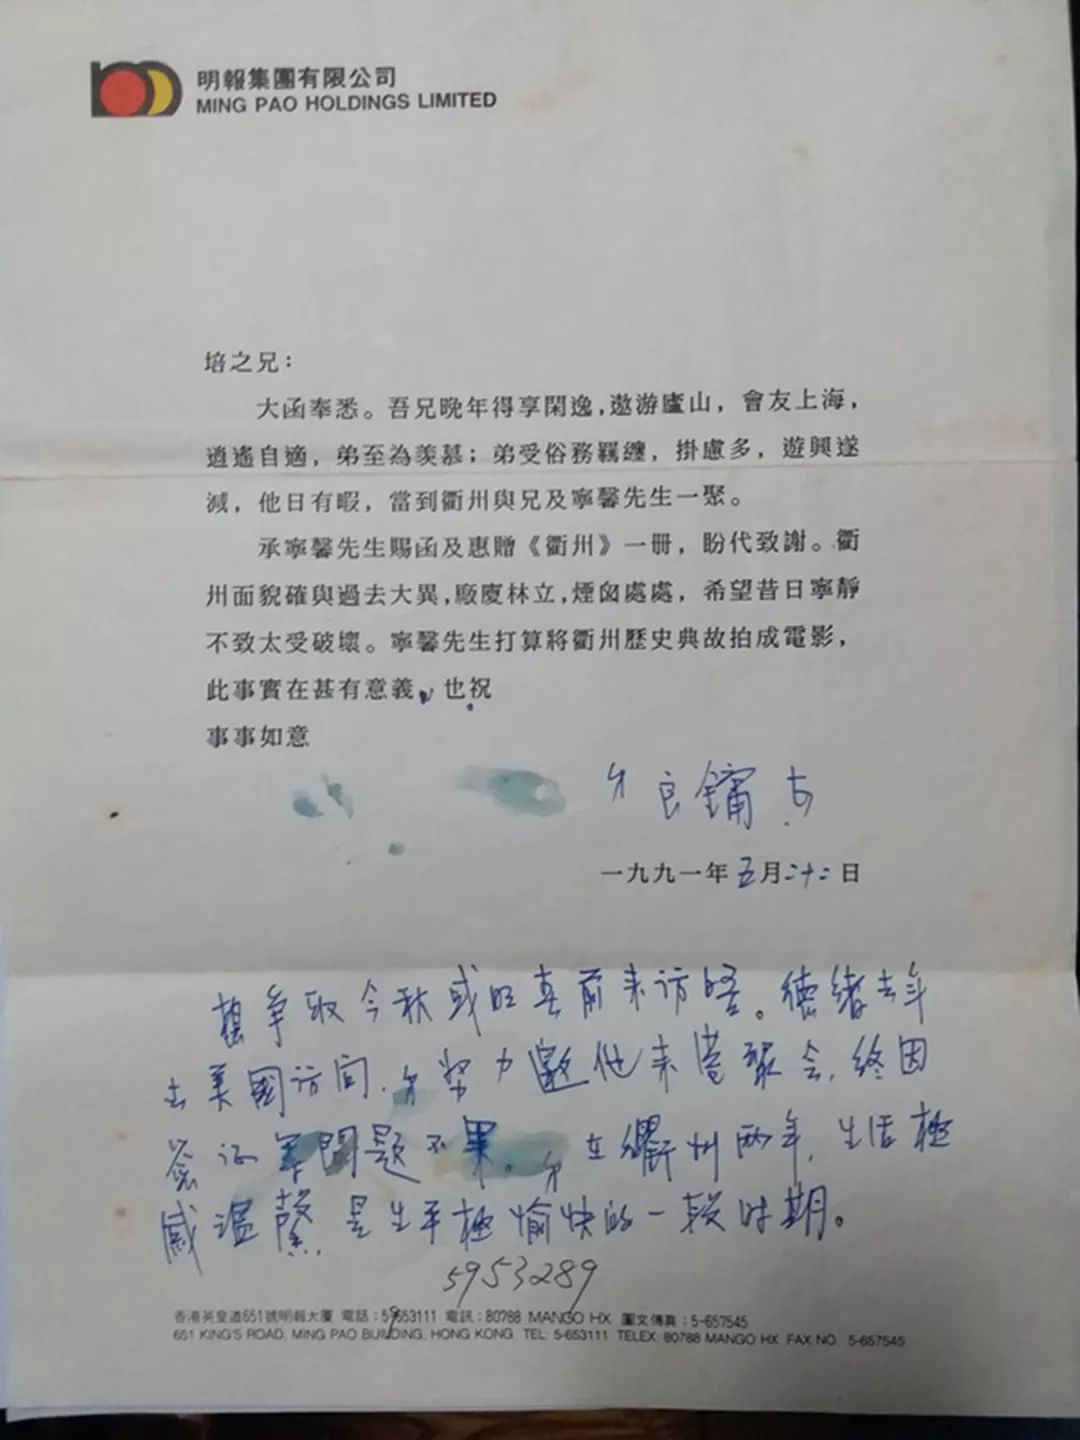 明報集團有限公司
MING PAO HOLDINGS LIMITED
培之兄：
大函奉悉。吾兄晚年得享閑逸，遨游廬山，會友上海，
逍遙自適，弟至為羨慕；弟受俗務羈纏，掛慮多，遊興遂
減，他日有暇，當到衢州與兄及寧馨先生一聚。
承寧馨先生賜函及惠贈《衢州》一冊，盼代致謝。衢
州面貌確與過去大異，廠廈林立，煙囪處處，希望昔日寧靜
不致太受破壞。寧馨先生打算將衢州歷史典故拍成電影，
此事實在甚有意義，也祝
事事如意
弟 良鏞 上
一九九一年五月二十二日
想爭取今秋或明春前來訪晤。德緒去年
去美國訪問，弟努力邀他來港聚會，終因
簽证等問題不果。弟在衢州兩年，生活極
感溫馨，是生平極愉快的一段时期。
5953289
香港英皇道651號明報大厦 電話：5-653111 電訊：80788 MANGO HX 圖文傳真：5-657545
651 KING'S ROAD, MING PAO BUILDING, HONG KONG TEL: 5-653111 TELEX: 80788 MANGO HX FAX NO. 5-657545